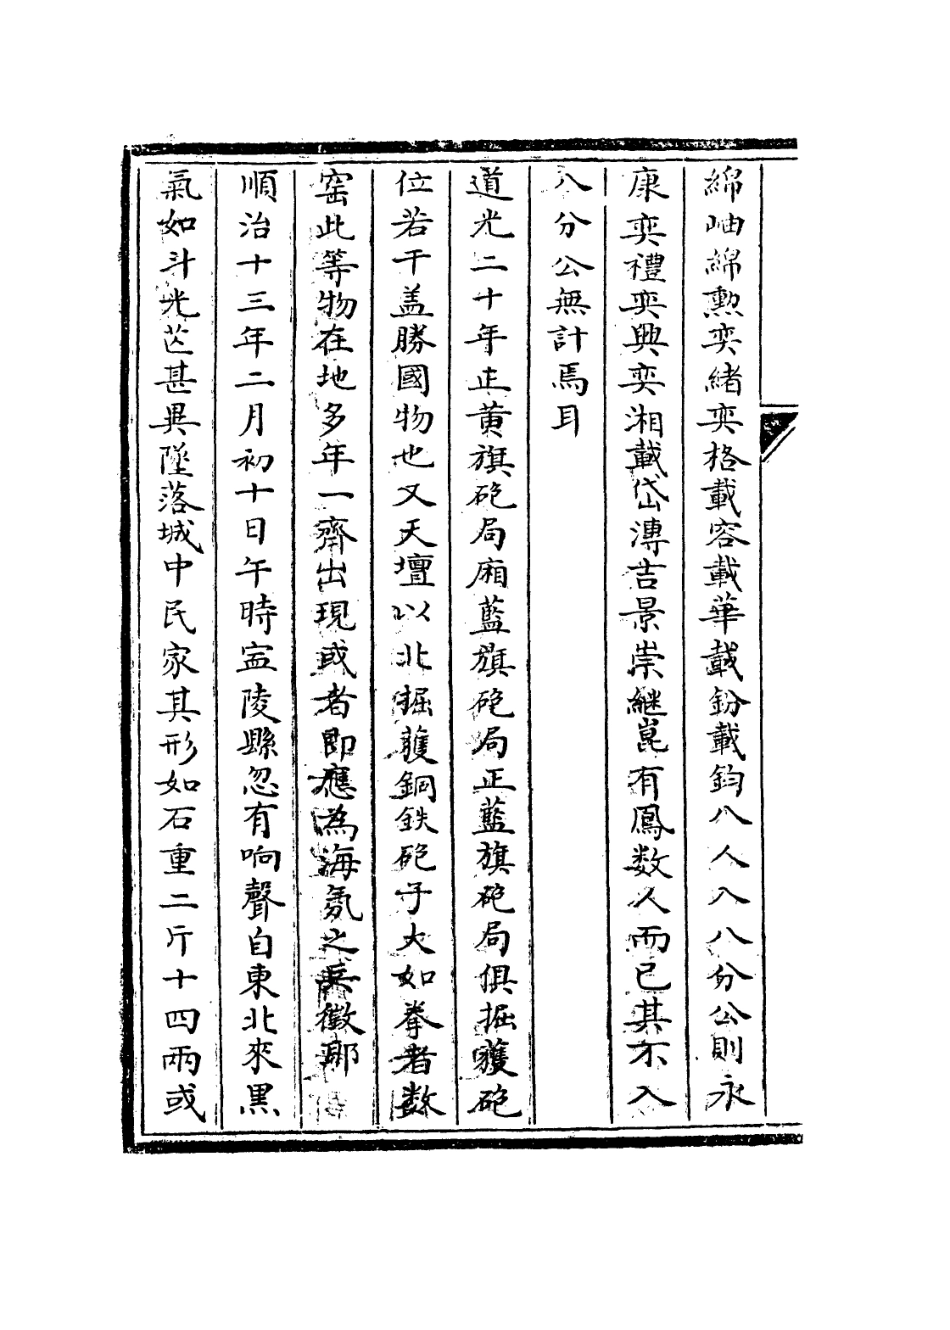 綿岫綿勲奕緒奕格載容載華載鈖載鈞八人入八分公則永
康奕禮奕興奕湘載岱溥吉景崇継崑有鳳数人而已其不入
八分公無計焉耳
道光二十年正黄旗砲局廂藍旗砲局正藍旗砲局俱掘獲砲
位若干盖勝國物也又天壇以北掘獲銅鉄砲子大如拳者数
窑此等物在地多年一齊出現或者即應為海氛之兵徵耶
順治十三年二月初十日午時寍陵縣忽有响聲自東北來黒
氣如斗光芒甚異墜落城中民家其形如石重二斤十四兩或